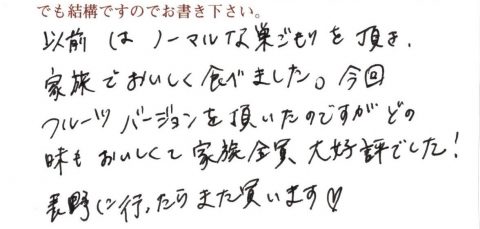 でも結構ですのでお書き下さい。
以前 は ノーマルな巣ごもりを頂き、
家族でおいしく食べました。今回
フルーツ バージョンを頂いたのですがどの
味も おいしくて 家族全員、大好評でした!
長野に行ったらまた買います♡